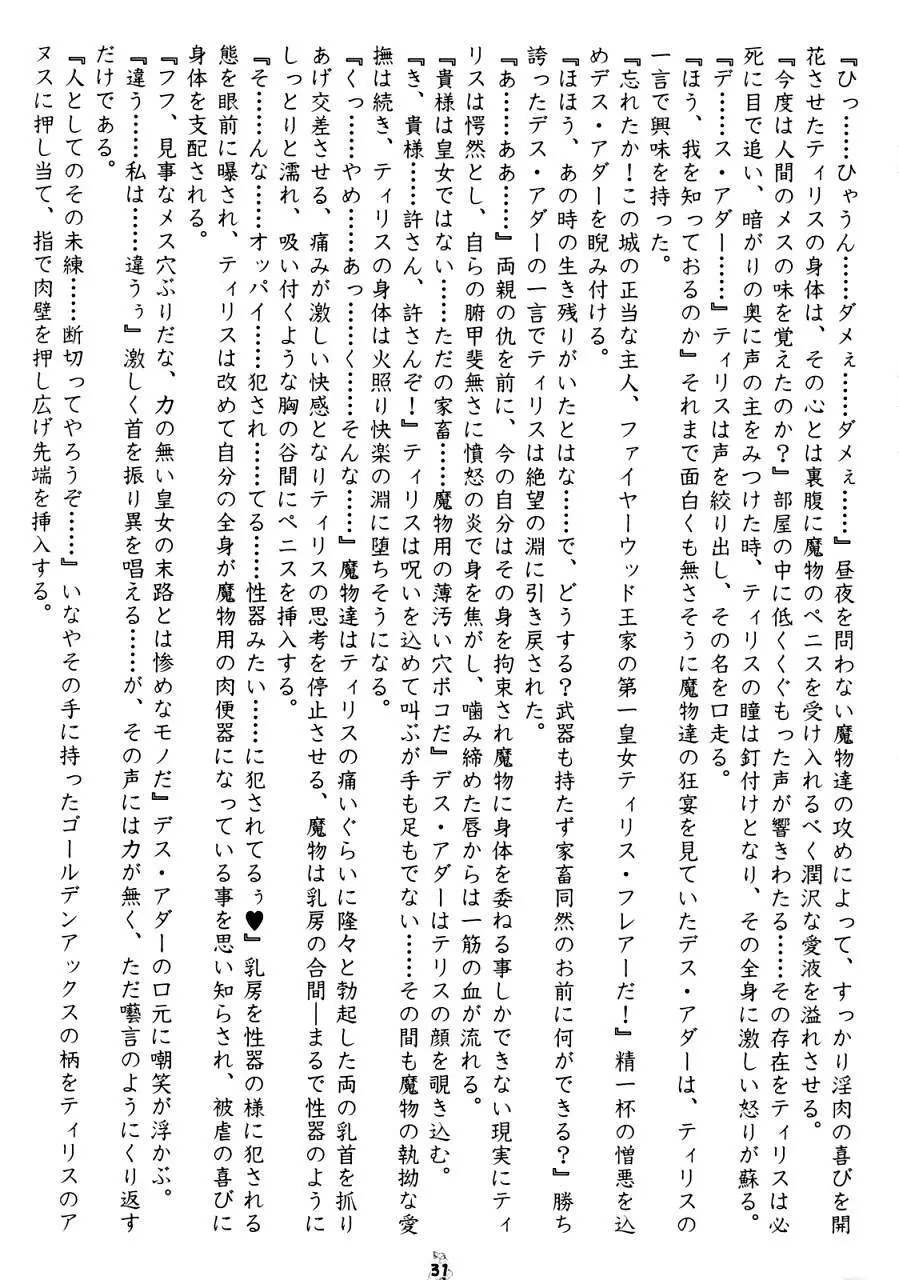 『ひっ……ひゃうん……ダメぇ……ダメぇ……』昼夜を問わない魔物達の攻めによって、すっかり淫肉の喜びを開
花させたティリスの身体は、その心とは裏腹に魔物のペニスを受け入れるべく潤沢な愛液を溢れさせる。
『今度は人間のメスの味を覚えたのか?』部屋の中に低くくぐもった声が響きわたる……その存在をティリスは必
死に目で追い、暗がりの奥に声の主をみつけた時、ティリスの瞳は釘付けとなり、その全身に激しい怒りが蘇る。
『デ……ス・アダー……』ティリスは声を絞り出し、その名を口走る。
『ほう、我を知っておるのか』それまで面白くも無さそうに魔物達の狂宴を見ていたデス・アダーは、ティリスの
一言で興味を持った。
『忘れたか!この城の正当な主人、ファイヤーウッド王家の第一皇女ティリス・フレアーだ!』精一杯の憎悪を込
めデス・アダーを睨み付ける。
『ほほう、あの時の生き残りがいたとはな……で、どうする?武器も持たず家畜同然のお前に何ができる?』勝ち
誇ったデス・アダーの一言でティリスは絶望の淵に引き戻された。
『あ……ああ……』両親の仇を前に、今の自分はその身を拘束され魔物に身体を委ねる事しかできない現実にティ
リスは愕然とし、自らの腑甲斐無さに憤怒の炎で身を焦がし、噛み締めた唇からは一筋の血が流れる。
『貴様は皇女ではない……ただの家畜……魔物用の薄汚い穴ボコだ』デス・アダーはテリスの顔を覗き込む。
『き、貴様……許さん、許さんぞ!』ティリスは呪いを込めて叫ぶが手も足もでない……その間も魔物の執拗な愛
撫は続き、ティリスの身体は火照り快楽の淵に堕ちそうになる。
『くっ……やめ……あっ……く……そんな……』魔物達はティリスの痛いぐらいに隆々と勃起した両の乳首を抓り
あげ交差させる、痛みが激しい快感となりティリスの思考を停止させる、魔物は乳房の合間―まるで性器のように
しっとりと濡れ、吸い付くような胸の谷間にペニスを挿入する。
『そ……んな……オッパイ……犯され……てる……性器みたい……に犯されてるぅ♥』乳房を性器の様に犯される
態を眼前に曝され、ティリスは改めて自分の全身が魔物用の肉便器になっている事を思い知らされ、被虐の喜びに
身体を支配される。
『フフ、見事なメス穴ぶりだな、力の無い皇女の末路とは惨めなモノだ』デス・アダーの口元に嘲笑が浮かぶ。
『違う……私は……違うぅ』激しく首を振り異を唱える……が、その声には力が無く、ただ囈言のようにくり返す
だけである。
『人としてのその未練……断切ってやろうぞ……』いなやその手に持ったゴールデンアックスの柄をティリスのア
ヌスに押し当て、指で肉壁を押し広げ先端を挿入する。
31